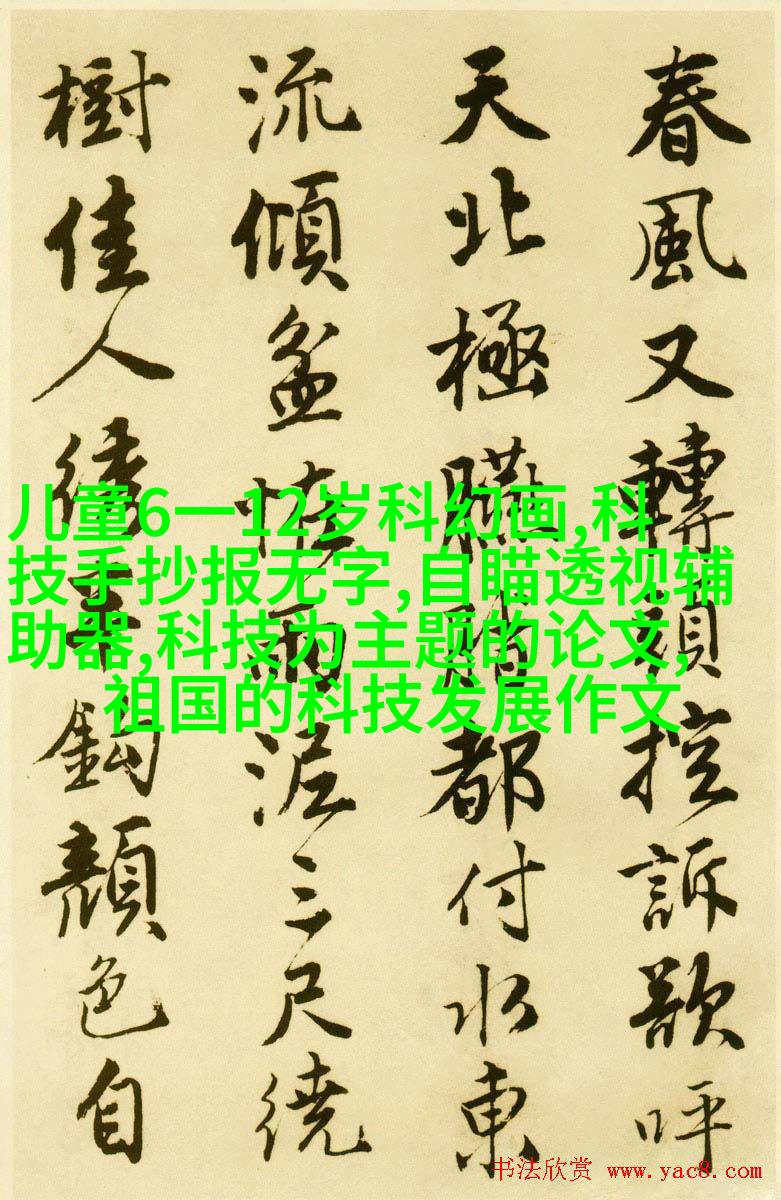 春風又轉控訴歌呼
天北極臟都付水東
流傾盆雨三尺繞
樹佳人顏色自
儿童6一12岁科幻画,科
技手抄报无字,自瞄透视辅
助器,科技为主题的论文,
祖国的科技发展作文
书法欣赏 www.yac8.com